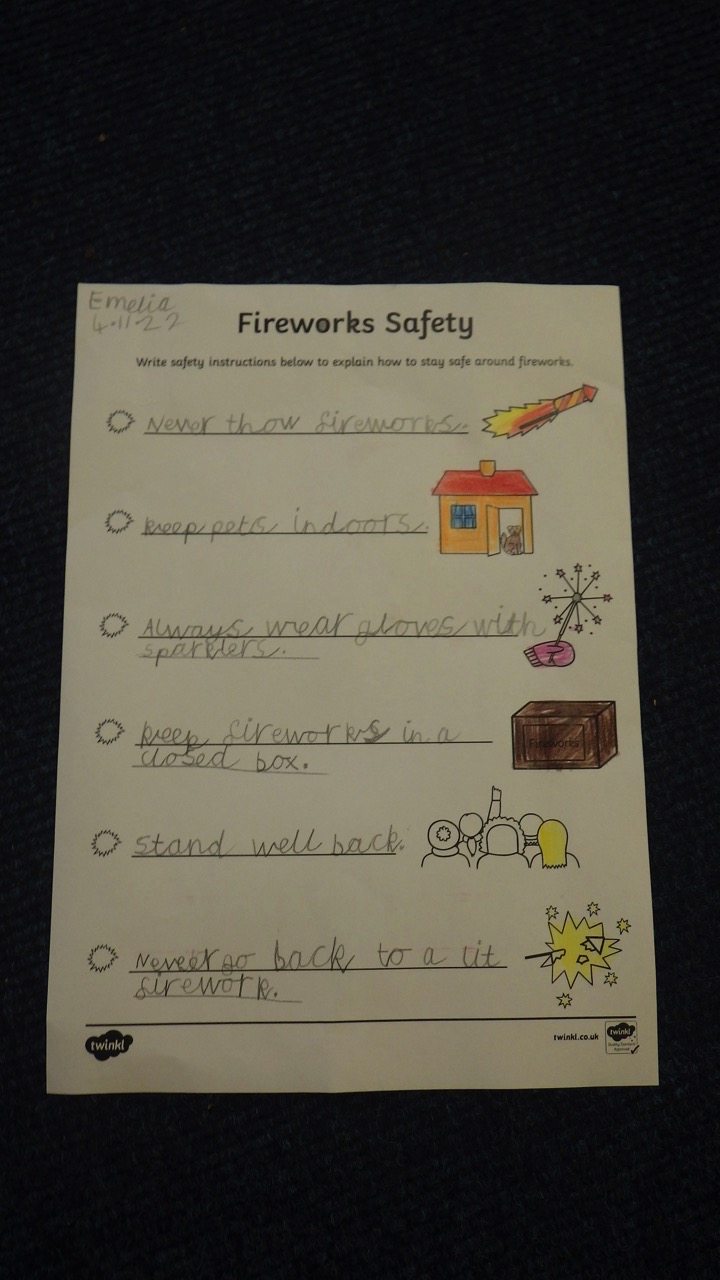 Emelia
4.11.22
Fireworks Safety
Write safety instructions below to explain how to stay safe around fireworks.
Never thow fireworks.
keep pets indoors.
Always wear gloves with
sparklers.
keep fireworks in a
closed box.
Fireworks
Stand well back.
Never go back to a lit
firework.
twinkl
twinkl.co.uk
twinkl
Quality Standard
Approved